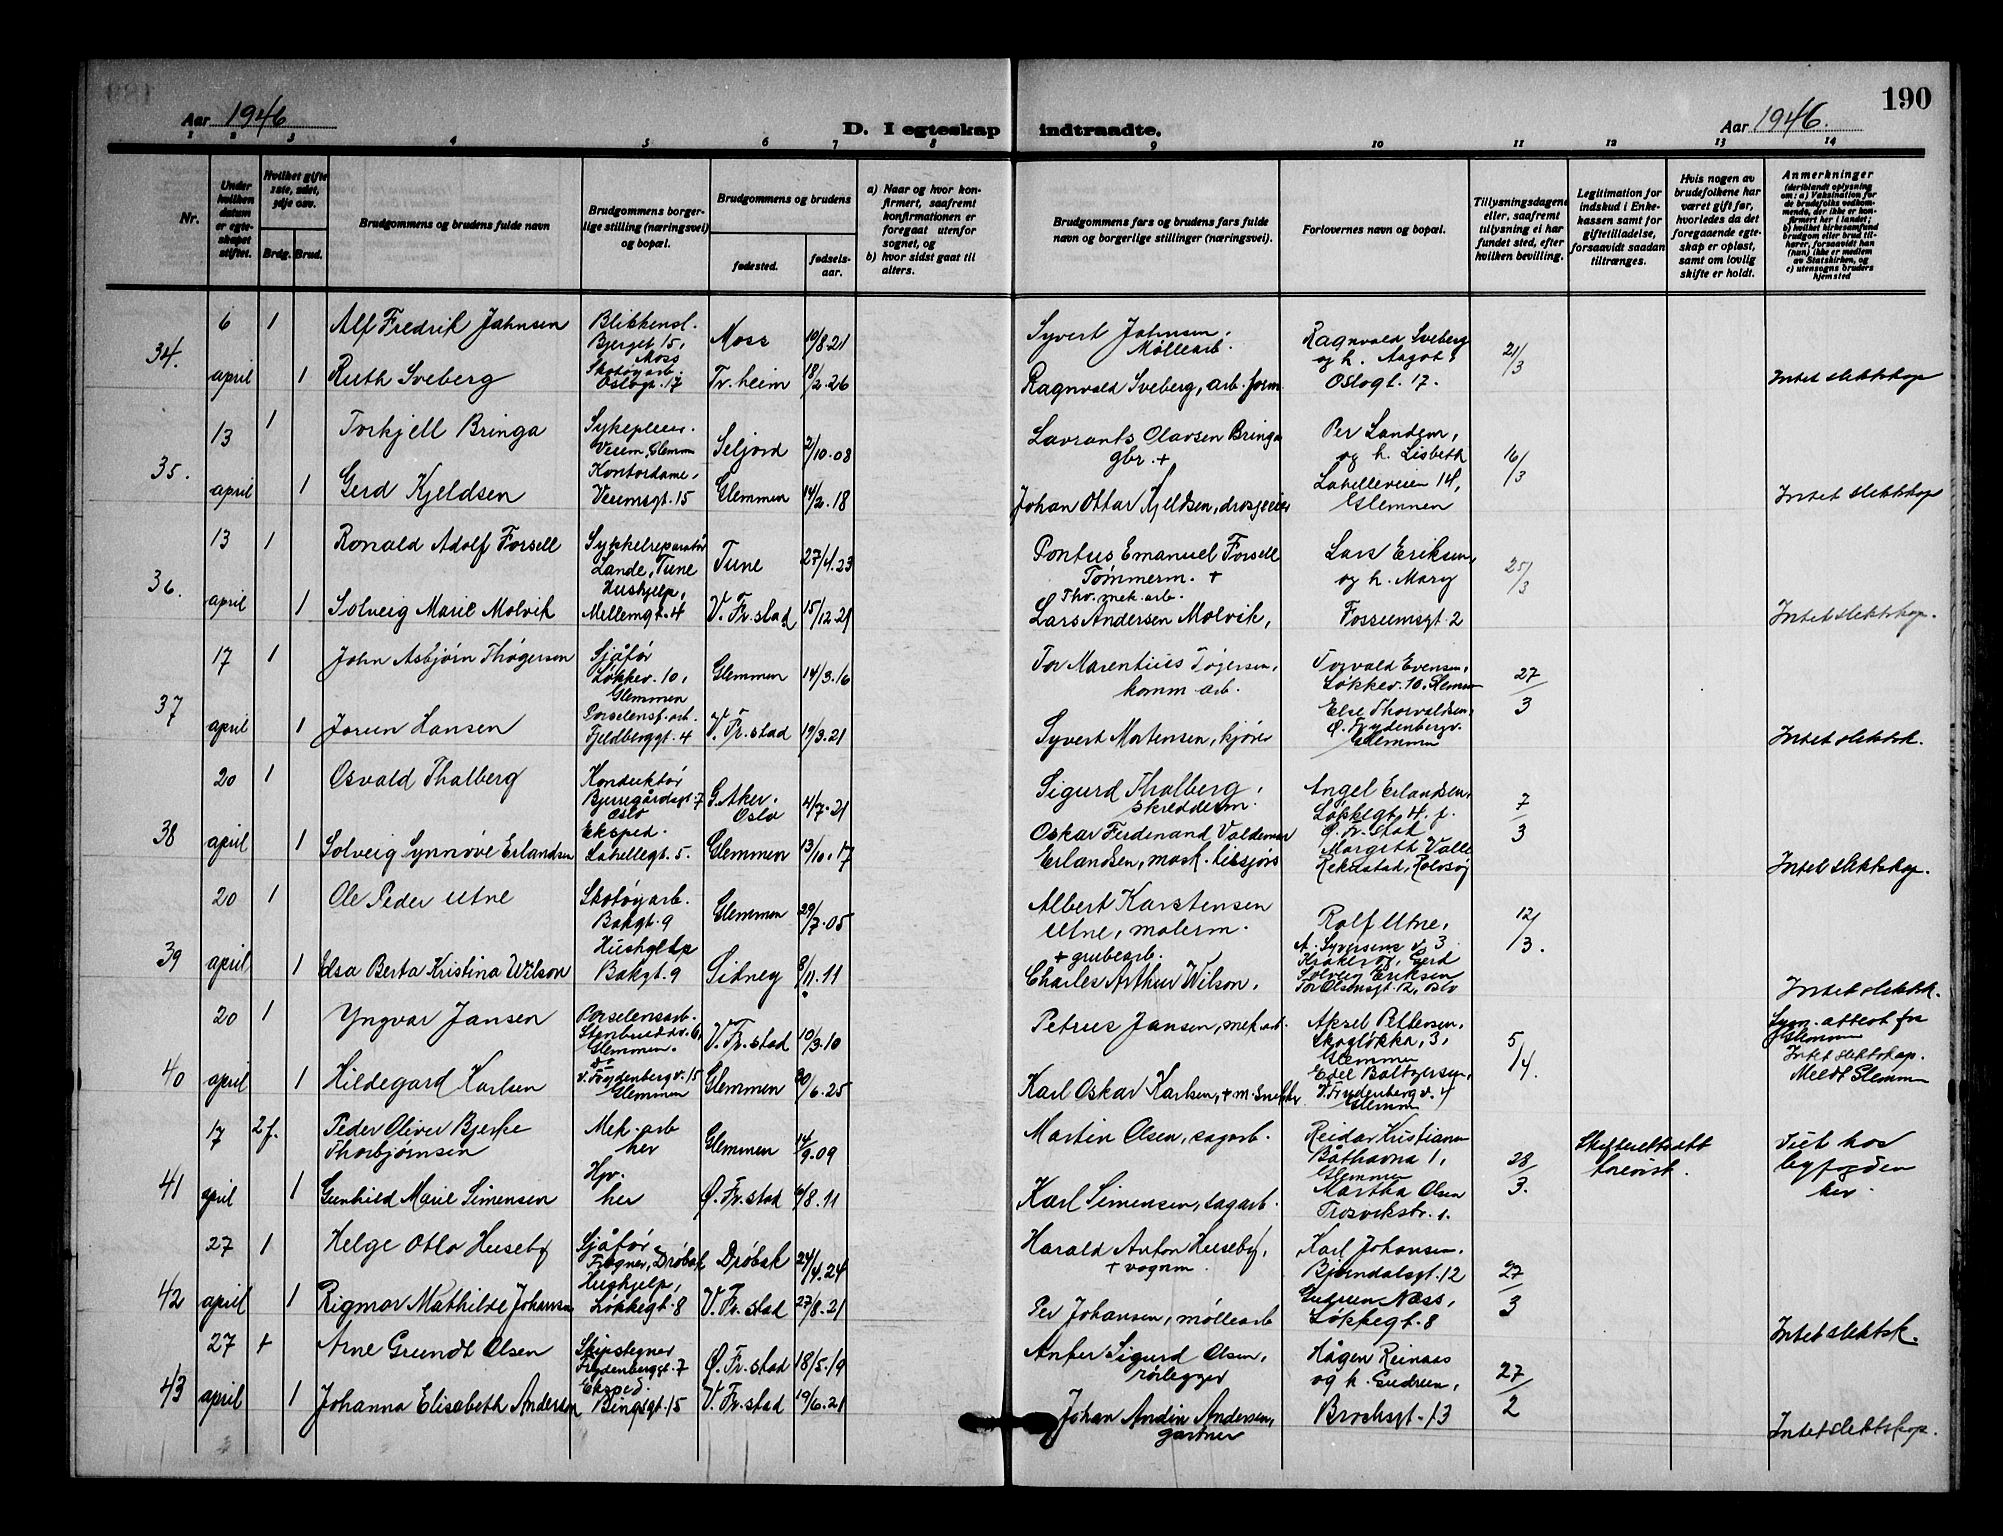 190
Aar 1946
D. I egteskap indtraadte.
Aar 1946.
1 2 3 4 5 6 7 8 9 10 11 12 13 14
Nr.
Under hvilken datum er egteskapet stiftet.
Hvilket gifte 1ste, 2det, 3dje osv.
Brdg. Brud.
Brudgommens og brudens fulde navn
Brudgommens borgerlige stilling (næringsvei) og bopæl.
Brudgommens og brudens
fødested.
fødselsaar.
a) Naar og hvor konfirmert, saafremt konfirmationen er foregaat utenfor sognet, og
b) hvor sidst gaat til alters.
Brudgommens fars og brudens fars fulde navn og borgerlige stillinger (næringsvei).
Forlovernes navn og bopæl.
Tillysningsdagene eller, saafremt tillysning ei har fundet sted, efter hvilken bevilling.
Legitimation for indskud i Enkekassen samt for giftetilladelse, forsaavidt saadan tiltrænges.
Hvis nogen av brudefolkene har været gift før, hvorledes da det foregaaende egteskap er opløst, samt om lovlig skifte er holdt.
Anmerkninger
(deriblandt oplysning om: a) Vaksination for de brudefolks vedkommende, der ikke er konfirmert her i landet; b) hvilket kirkesamfund brudgom eller brud tilhører, forsaavidt han (hun) ikke er medlem av Statskirken, og c) utensogns bruders hjemsted
34.
6 1 Alf Fredrik Jahnsen
Blikkensl.
Bjerget 15,
Moss
Moss 19/8.21
Syvert Jahnsen,
Møllearb.
Ragnvald Sveberg
og h. Aagot,
Oslogt. 17.
21/3
april 1 Ruth Sveberg
Skotøyarb.
Oslogt. 17
Tr.heim 18/2.26
Ragnvald Sveberg, arb. form.
Intet slektskap
35.
13 1 Torkjell Bringa
Sykepleier.
Veum, Glemmen
Seljord 2/10.08
Lavrants Olavsen Bringa
gbr. +
Per Landem,
og h. Lisbeth
Lahelleveien 14,
Glemmen
16/3
april 1 Gerd Kjeldsen
Kontordame,
Veumsgt. 15
Glemmen 14/2.18
Johan Ottar Kjeldsen, drosjeeier
Intet slektskap
36.
13 1 Ronald Adolf Forsell
Sykkelreparatør
Lande, Tune
Tune 27/4.23
Pontus Emanuel Forsell
Tømmerm. +
Lars Eriksen,
og h. Mary
Fossumsgt. 2
25/3
april 1 Solveig Marie Molvik
Hushjelp,
Mellemgt. 4
V. Fr.stad 15/12.21
Thv. mek. arb.
Lars Andersen Molvik,
Intet slektskap.
37
17 1 John Asbjørn Thøgersen
Sjåfør
Løkkev. 10,
Glemmen
Glemmen 14/3.16
Tor Marentius Tøgersen,
komm. arb.
Torvald Evensen,
Løkkev. 10, Glemmen
Else Thorvaldsen,
Ø. Frydenbergv.
Glemmen
27/3
april 1 Jorun Hansen
Porselensf. arb.
Fjeldberggt. 4
V. Fr.stad 19/3.21
Syvert Mortensen, kjører
Intet slektsk.
38
20 1 Osvald Thalberg
Konduktør
Bjerregårdsgt. 7
Oslo
G. Aker.
Oslo 4/7.21
Sigurd Thalberg,
skredderm.
Angel Erlandsen,
Løkkegt. 4. f.
Ø. Fr. stad
Margith Valle
Rekustad, Rolvsøy
7/3
april 1 Solveig Synnøve Erlandsen
Eksped.
Lahellegt. 5.
Glemmen 13/10.17
Oskar Ferdinand Valdemar
Erlandsen, mask. tilsjørs
Intet slektskap.
39
20 1 Ole Peder Utne
Skotøyarb.
Bakgt. 9
Glemmen 29/7.05
Albert Karstensen
Utne, malerm.
Rolf Utne,
A. Syversens v. 3
Kråkerøy, Gerd
Solveig Eriksen
Tor Olsensgt. 12, Oslo
12/3.
april 1 Edsa Berta Kristina Wilson
Hushjelp
Bakgt. 9
Sidney 8/11.11
+ grubearb.
Charles Arthur Wilson,
Intet slektsk.
40
20 1 Yngvar Jansen
Porselensarb.
Stenbruddv. 6,
Glemmen.
V. Fr.stad 10/3.10
Petrus Jansen, mek. arb.
Aksel Pettersen,
Skogløkka, 3,
Glemmen
Edel Baltzersen,
V. Frydenberg v. 4
Glemm
5/4.
Lysn. attest fra
Glemmen
april 1 Hildegard Karlsen
do
V. Frydenberg v. 15
Glemmen
Glemmen 30/6.25
Karl Oskar Karlsen, + m. snekker
Intet slektskap.
Meldt Glemm
41
17 2 f. Peder Oliver Bjerke
Thorbjørnsen
Mek. arb
her
Glemmen 14/9.09
Martin Olsen, sagarb.
Reidar Kristiansen
Båthavna 1,
Glemmen
Martha Olsen
Trosvikstr. 1.
28/3.
Skifterettsatt
forevist.
Viet hos
byfogden
her.
april 1 Gunhild Marie Simensen
Hpr.
her
Ø. Fr.stad 6/8.11
Karl Simensen, sagarb.
42
27 1 Helge Otto Huseby
Sjåfør
Frogner, Drøbak
Drøbak 24/4.24
Harald Anton Huseby,
+ vognm.
Karl Johansen.
Bjørndalsgt. 12
Gudrun Næss,
Løkkegt. 8
27/3
april 1 Rigmor Mathilde Johansen
Hushjelp,
Løkkegt. 8
V. Fr.stad 27/8.21
Per Johansen, møllearb
Intet slektsk.
43
27 + Arne Grundt Olsen
Skipstegner
Frydenbergt. 7
Ø. Fr.stad 18/5.19
Anker Sigurd Olsen,
rørlegger
Hågen Reinaas
og h. Gudrun,
Brochsgt. 13
27/2
april 1 Johanna Elisabeth Andersen
Eksped.
Bingsgt. 15
V. Fr.stad 19/6.21
Johan Andin Andersen,
gartner
Intet slektskap.